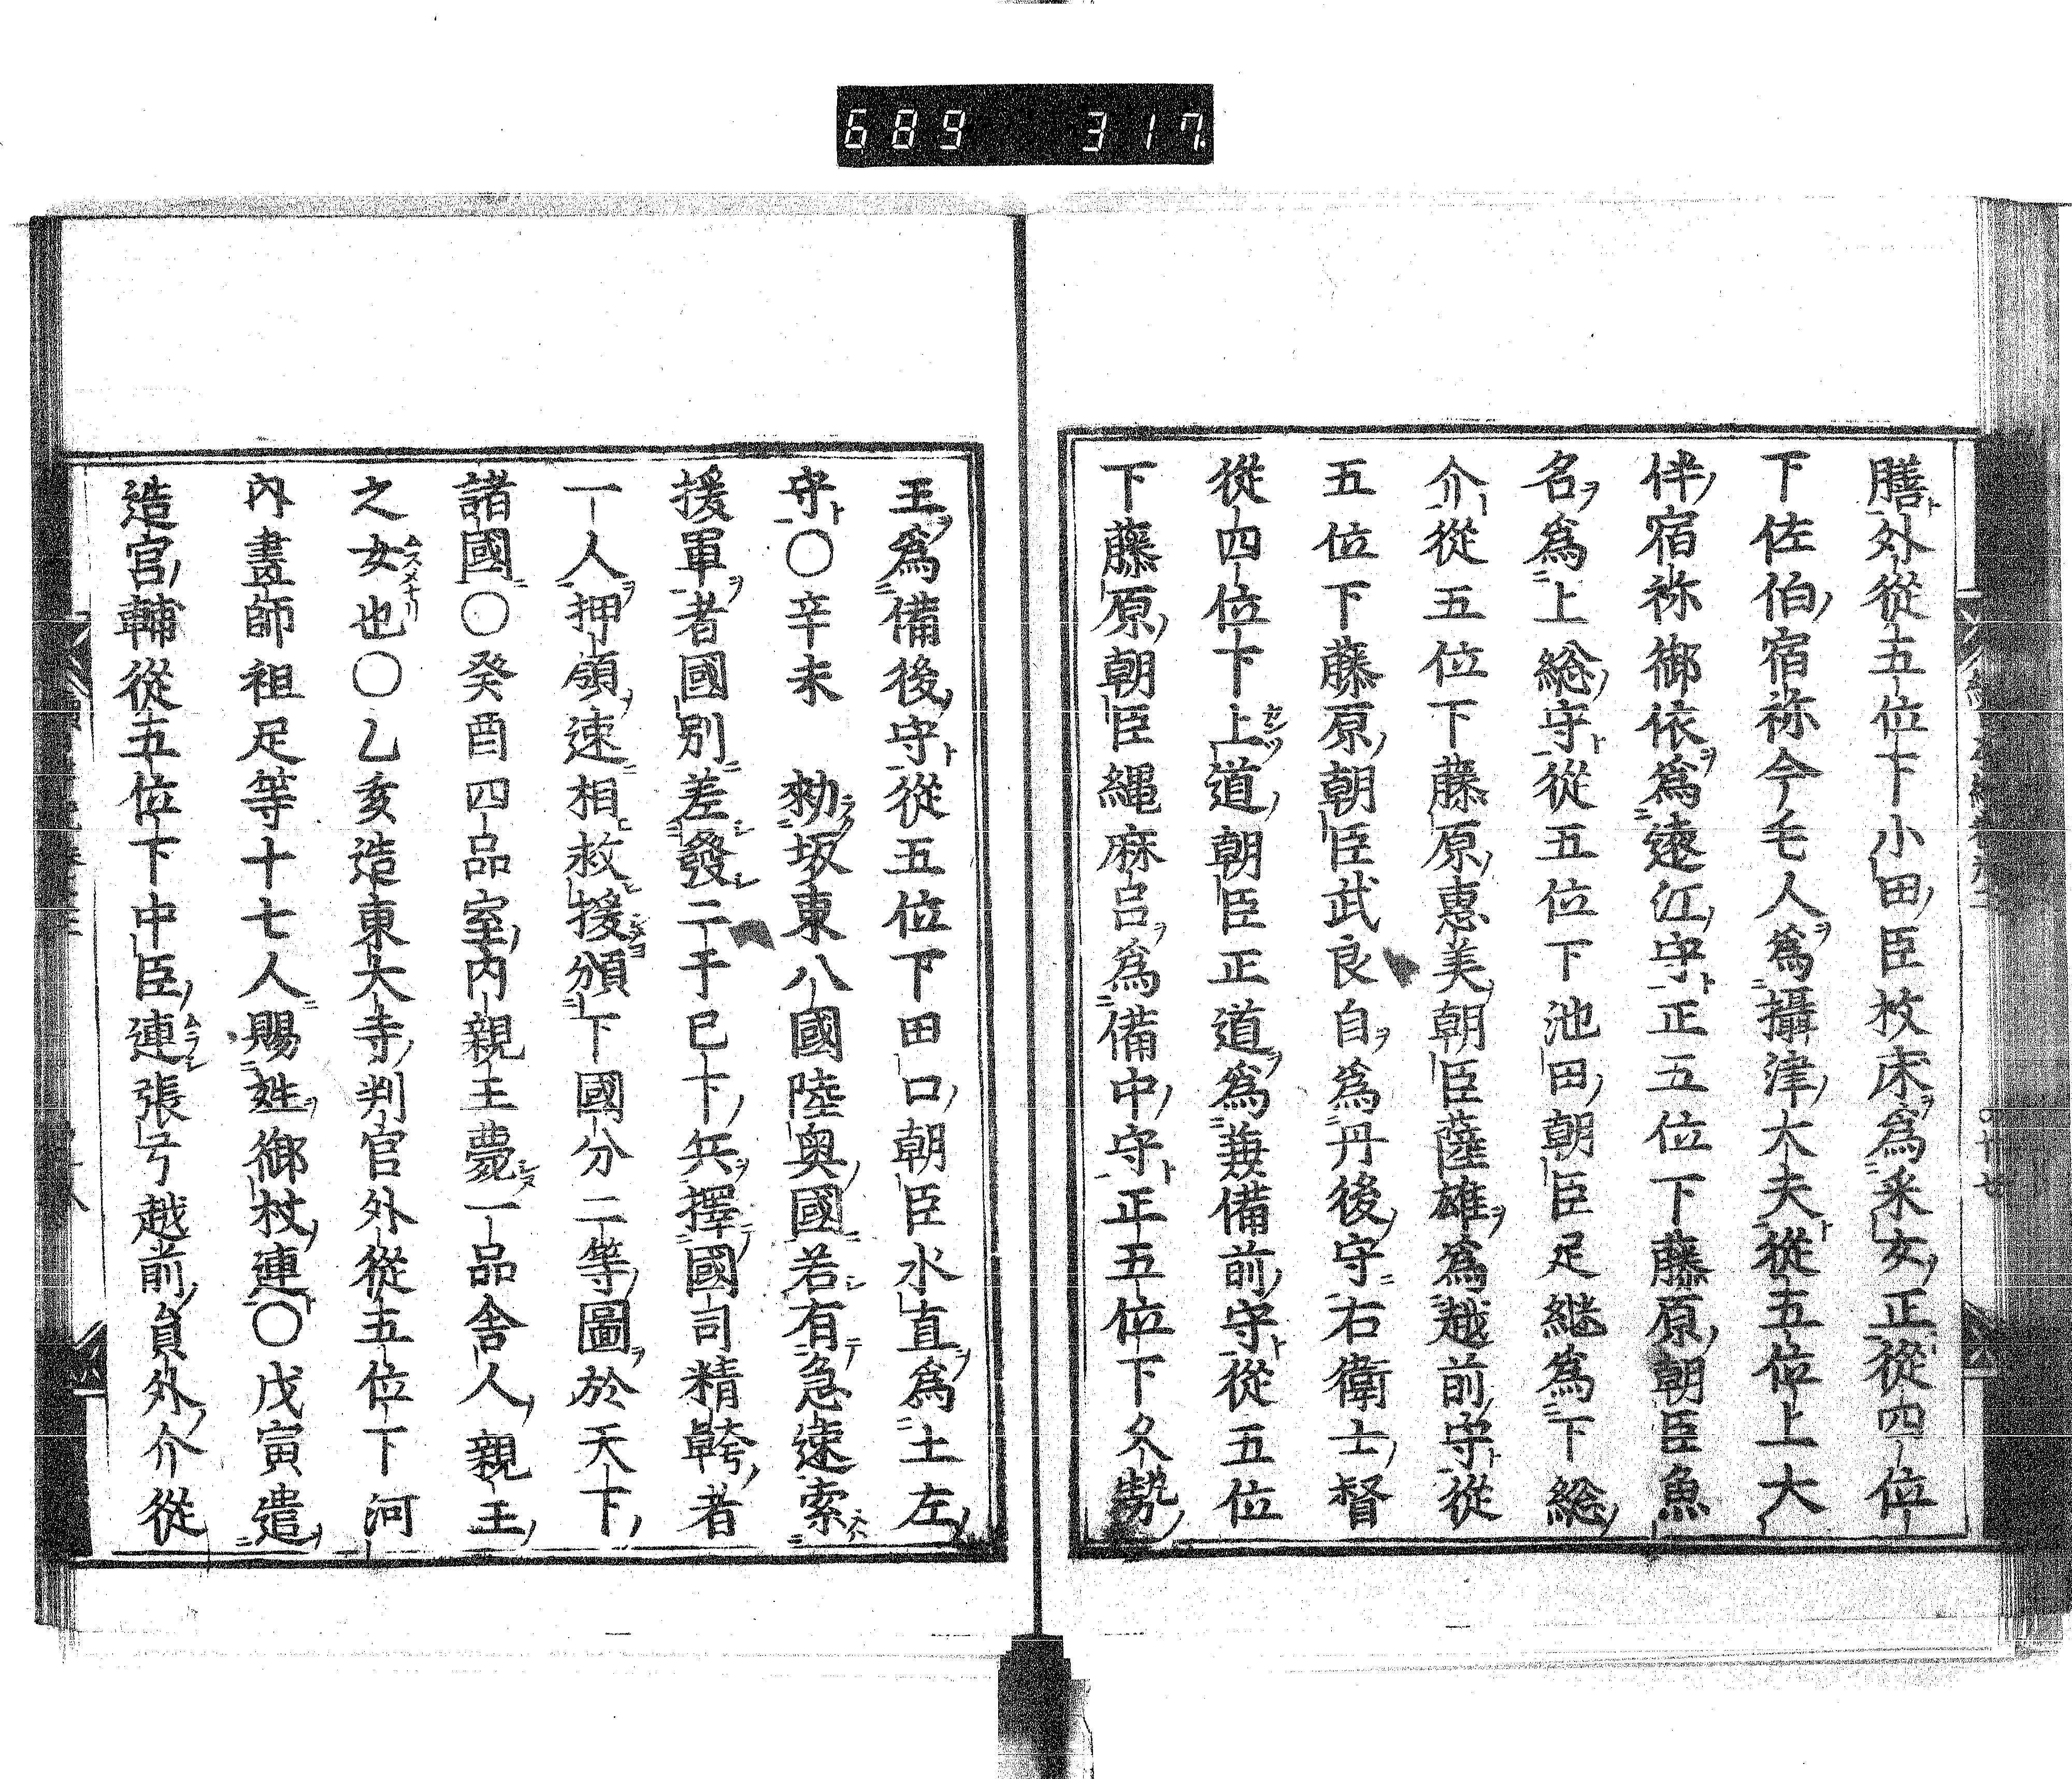 689 317
膳外從五位下小田臣枚床爲釆女正從四位
下佐伯宿祢今毛人爲攝津大夫從五位上大
伴宿祢御依爲遠江守正五位下藤原朝臣魚
名爲上総守從五位下池田朝臣足継爲下総
介從五位下藤原惠美朝臣薩雄爲越前守從
五位下藤原朝臣武良自爲丹後守右衛士督
從四位下上道朝臣正道爲兼備前守從五位
下藤原朝臣縄麻呂爲備中守正五位下久勢
王爲備後守從五位下田口朝臣水直爲土左
守〇辛未 勑坂東八國陸奥國若有急速索
援軍者國別差發二千已下兵擇國司精幹者
一人押領速相救援頒下國分二等圖於天下
諸國〇癸酉四品室内親王薨一品舎人親王
之女也〇乙亥造東大寺判官外從五位下河
内畫師祖足等十七人賜姓御杖連〇戊寅遣
造宮輔從五位下中臣連張弓越前員外介從